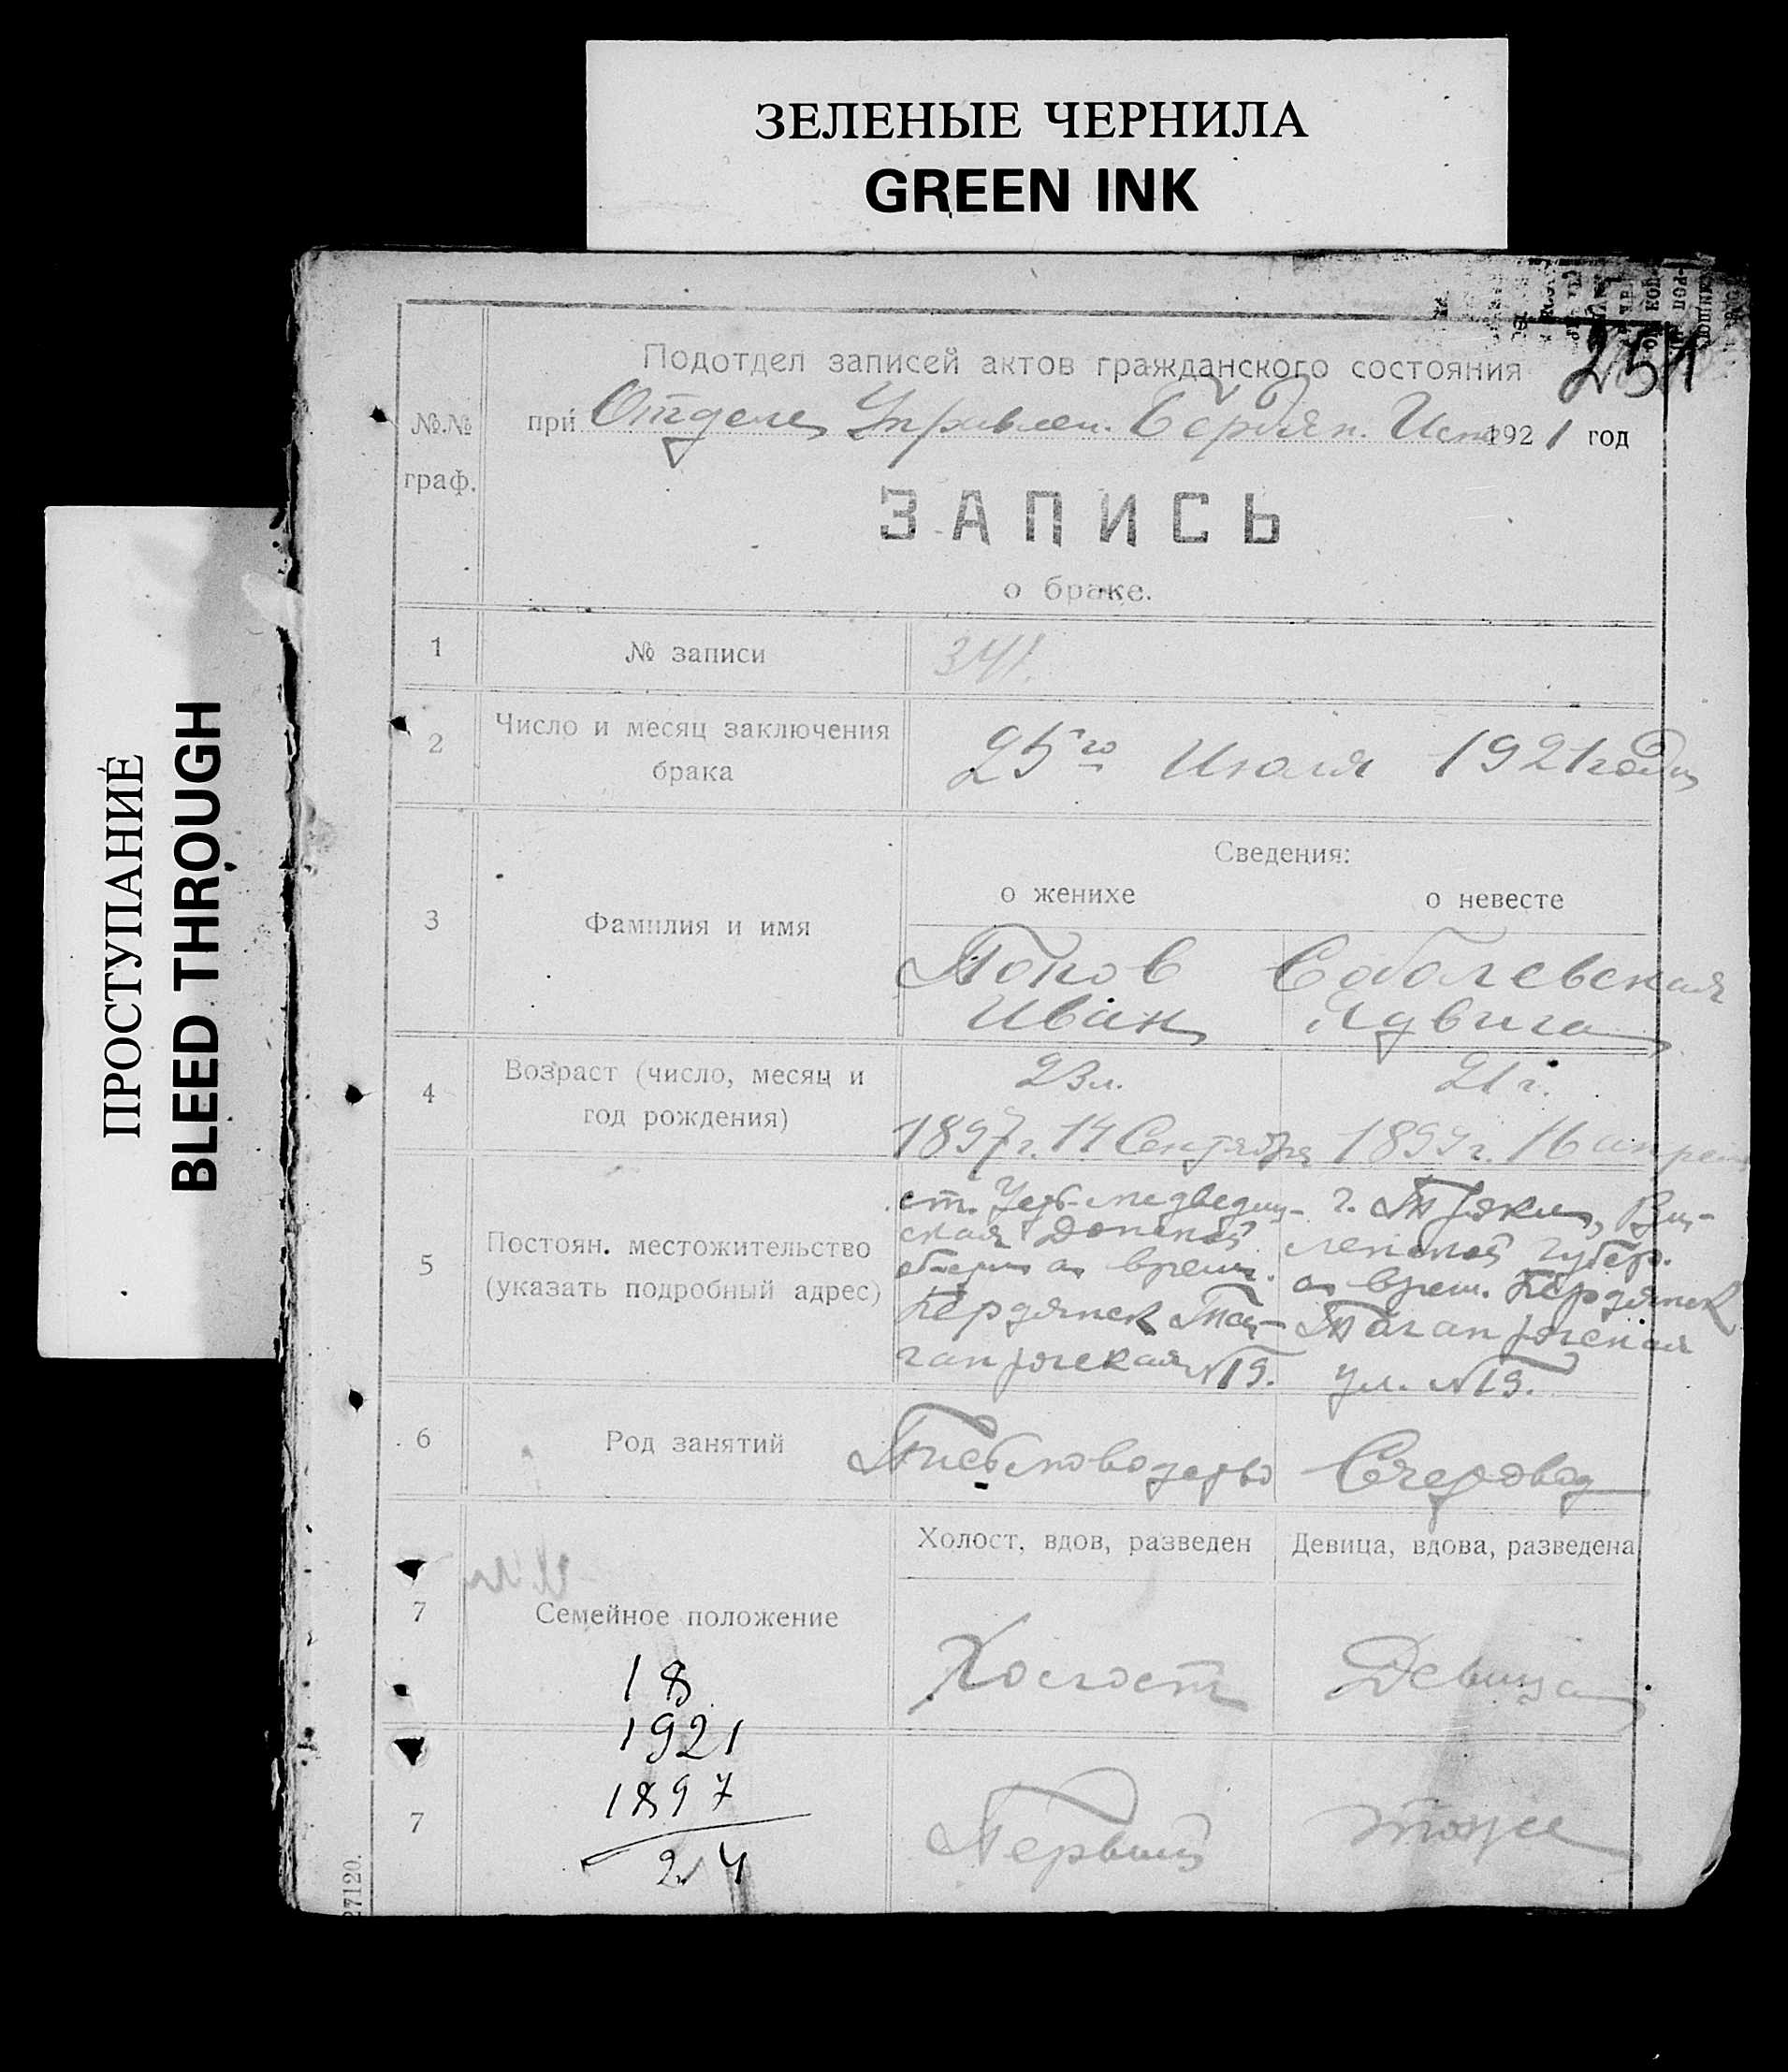 ЗЕЛЕНЫЕ ЧЕРНИЛА
GREEN INK
ПРОСТУПАНИЕ
BLEED THROUGH
251
Подотдел записей актов гражданского состояния
№.№ граф.
при Отделе Управлен. Бердян. Испо 1921 год
ЗАПИСЬ
о браке.
1 № записи 341.
2 Число и месяц заключения брака 25го Июля 1921 года
Сведения:
о женихе о невесте
3 Фамилия и имя
Попов Соболевская
Иван Ядвига
4 Возраст (число, месяц и год рождения)
23 л. 21 г.
1897 г. 14 Сентября 1899 г. 16 апреля
5 Постоян. местожительство (указать подробный адрес)
ст. Усть-медведиц- г. Троки, Ви-
ская Донской ленской губер.
области а времен. а врем. Бердянск
Бердянск Та- Таганрогская
ганрогская №19. ул. №19.
6 Род занятий
Письмоводство Счетовод
Холост, вдов, разведен Девица, вдова, разведена
7 Семейное положение
Холост Девица
18
1921
1897
24
7 Первый тоже
27120.